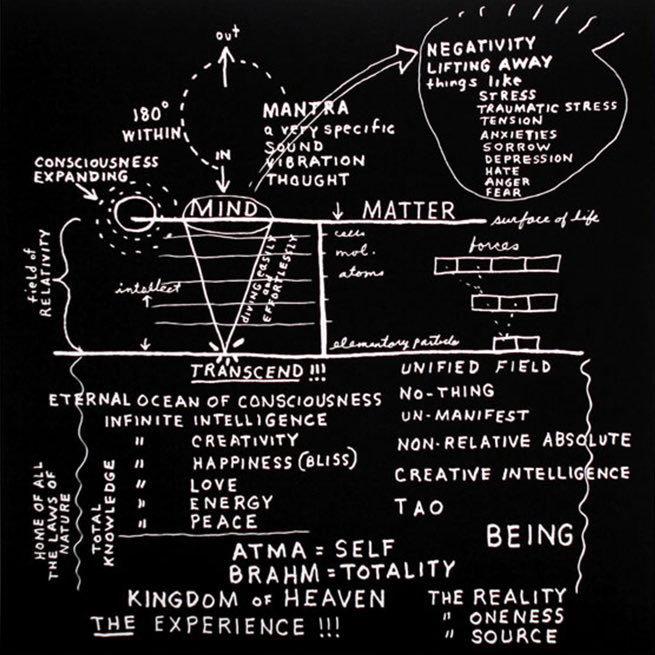 out
180°
WITHIN
IN
CONSCIOUSNESS
EXPANDING
MANTRA
a very specific
SOUND
VIBRATION
THOUGHT
NEGATIVITY
LIFTING AWAY
things like
STRESS
TRAUMATIC STRESS
TENSION
ANXIETIES
SORROW
DEPRESSION
HATE
ANGER
FEAR
MIND
MATTER
surface of life
field of
RELATIVITY
intellect
DIVING EASILY
and
EFFORTLESSLY
cells
mol.
atoms
elementary particle
forces
TRANSCEND !!!
ETERNAL OCEAN OF CONSCIOUSNESS
INFINITE INTELLIGENCE
" CREATIVITY
" HAPPINESS (BLISS)
" LOVE
" ENERGY
" PEACE
UNIFIED FIELD
NO-THING
UN-MANIFEST
NON-RELATIVE ABSOLUTE
CREATIVE INTELLIGENCE
TAO
BEING
HOME OF ALL
THE LAWS OF
NATURE
TOTAL
KNOWLEDGE
ATMA = SELF
BRAHM = TOTALITY
KINGDOM of HEAVEN
THE EXPERIENCE !!!
THE REALITY
" ONENESS
" SOURCE